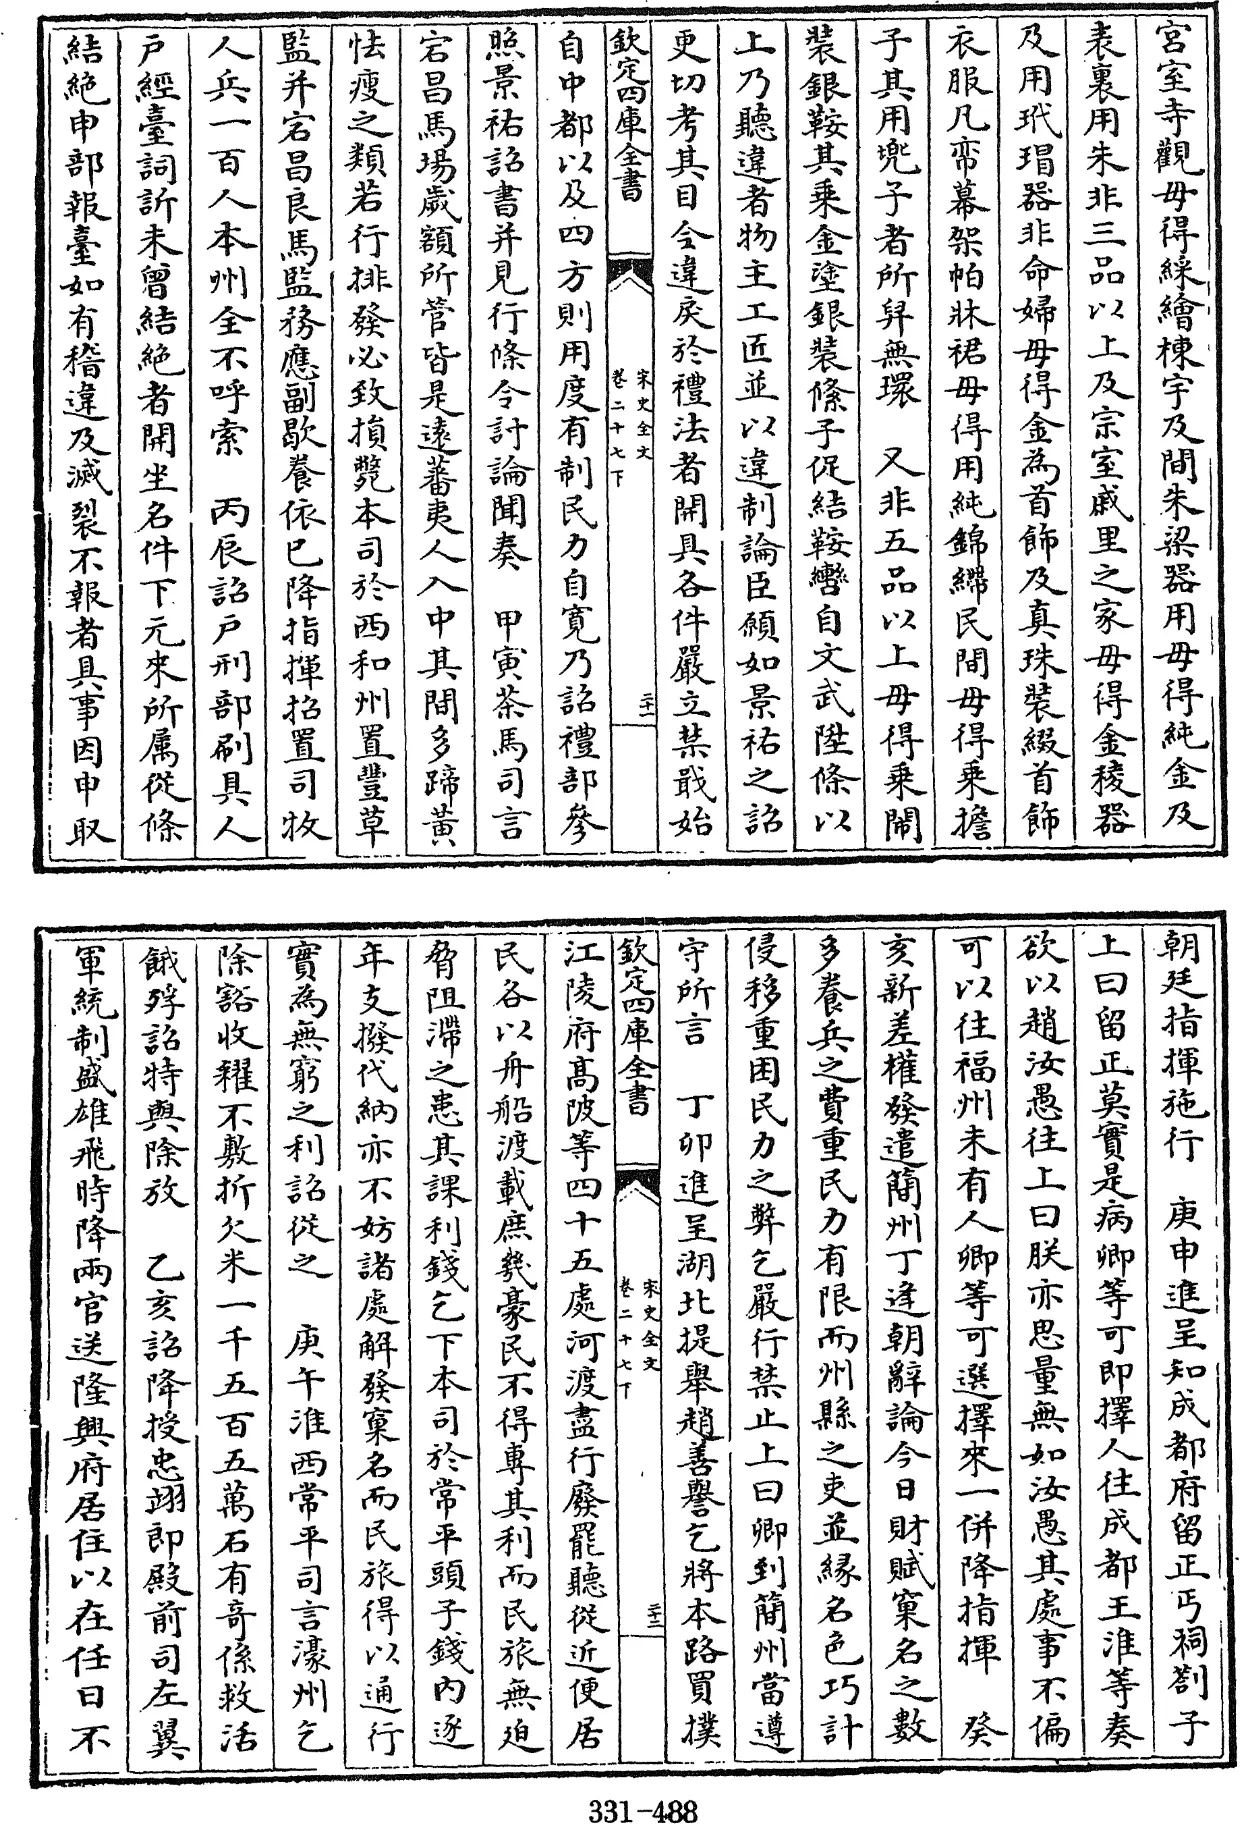 宮室寺觀毋得綵繪棟宇及間朱梁器用毋得純金及
表裏用朱非三品以上及宗室戚里之家毋得金稜器
及用玳瑁器非命婦毋得金為首飾及真珠裝綴首飾
衣服凡帟幕架帕牀裙毋得用純錦繡民間毋得乘擔
子其用兠子者所舁無環　又非五品以上毋得乘閙
裝銀鞍其乘金塗銀裝絛子促結鞍轡自文武陞條以
上乃聽違者物主工匠並以違制論臣願如景祐之詔
更切考其目令違戾於禮法者開具各件嚴立禁戢始
欽定四庫全書
宋史全文
卷二十七下
二十一
自中都以及四方則用度有制民力自寛乃詔禮部參
照景祐詔書并見行條令討論聞奏　甲寅茶馬司言
宕昌馬場歲額所管皆是逺蕃夷人入中其間多蹄黃
怯瘦之類若行排發必致損斃本司於西和州置豐草
監并宕昌良馬監務應副歇養依已降指揮招置司牧
人兵一百人本州全不呼索　丙辰詔戶刑部刷具人
戶經臺詞訴未曾結絶者開坐名件下元來所属從條
結絶申部報臺如有稽違及滅裂不報者具事因申取
朝廷指揮施行　庚申進呈知成都府留正丐祠劄子
上曰留正莫實是病卿等可即擇人往成都王淮等奏
欲以趙汝愚往上曰朕亦思量無如汝愚其處事不偏
可以往福州未有人卿等可選擇來一併降指揮　癸
亥新差權發遣簡州丁逢朝辭論今日財賦窠名之數
多養兵之費重民力有限而州縣之吏並緣名色巧計
侵移重困民力之弊乞嚴行禁止上曰卿到簡州當遵
守所言　丁卯進呈湖北提舉趙善譽乞將本路買撲
欽定四庫全書
宋史全文
卷二十七下
二十二
江陵府高陂等四十五處河渡盡行廢罷聽從近便居
民各以舟船渡載庶幾豪民不得專其利而民旅無廹
脅阻滯之患其課利錢乞下本司於常平頭子錢內逐
年支撥代納亦不妨諸處解發窠名而民旅得以通行
實為無窮之利詔從之　庚午淮西常平司言濠州乞
除豁收糴不敷折欠米一千五百五萬石有奇係救活
餓殍詔特與除放　乙亥詔降授忠翊郎殿前司左翼
軍統制盛雄飛時降兩官送隆興府居住以在任日不
331-488